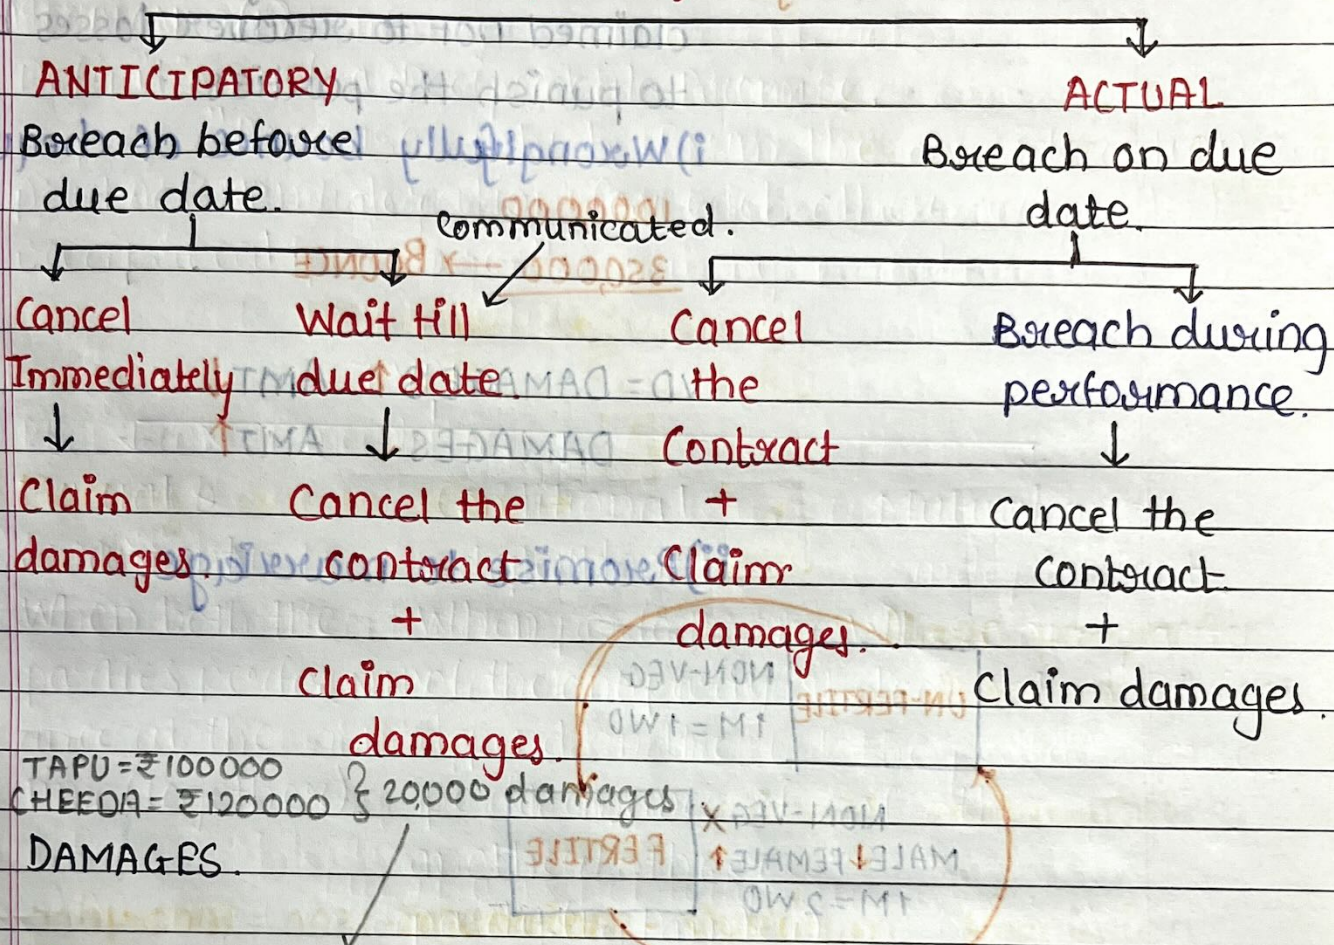 ANTICIPATORY
Breach before
due date.
Cancel
Immediately
Claim
damages.
Communicated.
Wait till
due date.
Cancel the
contract
+
Claim
damages.
ACTUAL
Breach on due
date.
Cancel
the
Contract
+
Claim
damages.
Breach during
performance.
Cancel the
contract
+
Claim damages.
TAPU = ₹100000
CHEEDA = ₹120000 } 20,000 damages
DAMAGES.